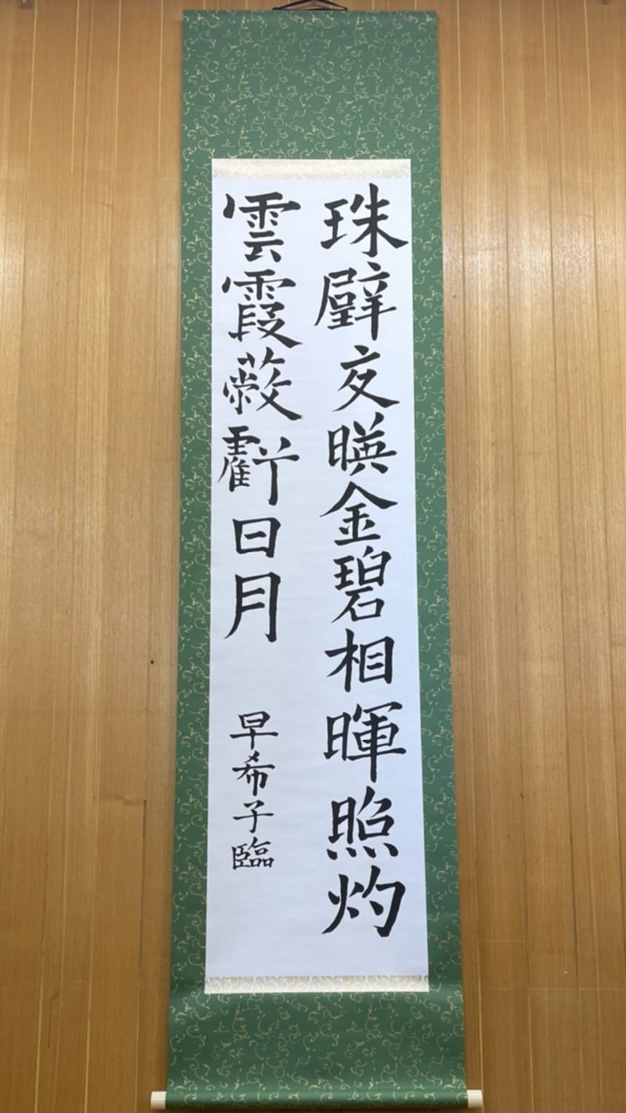 珠璧交暎金碧相暉照灼
雲霞蔽虧日月
早希子臨